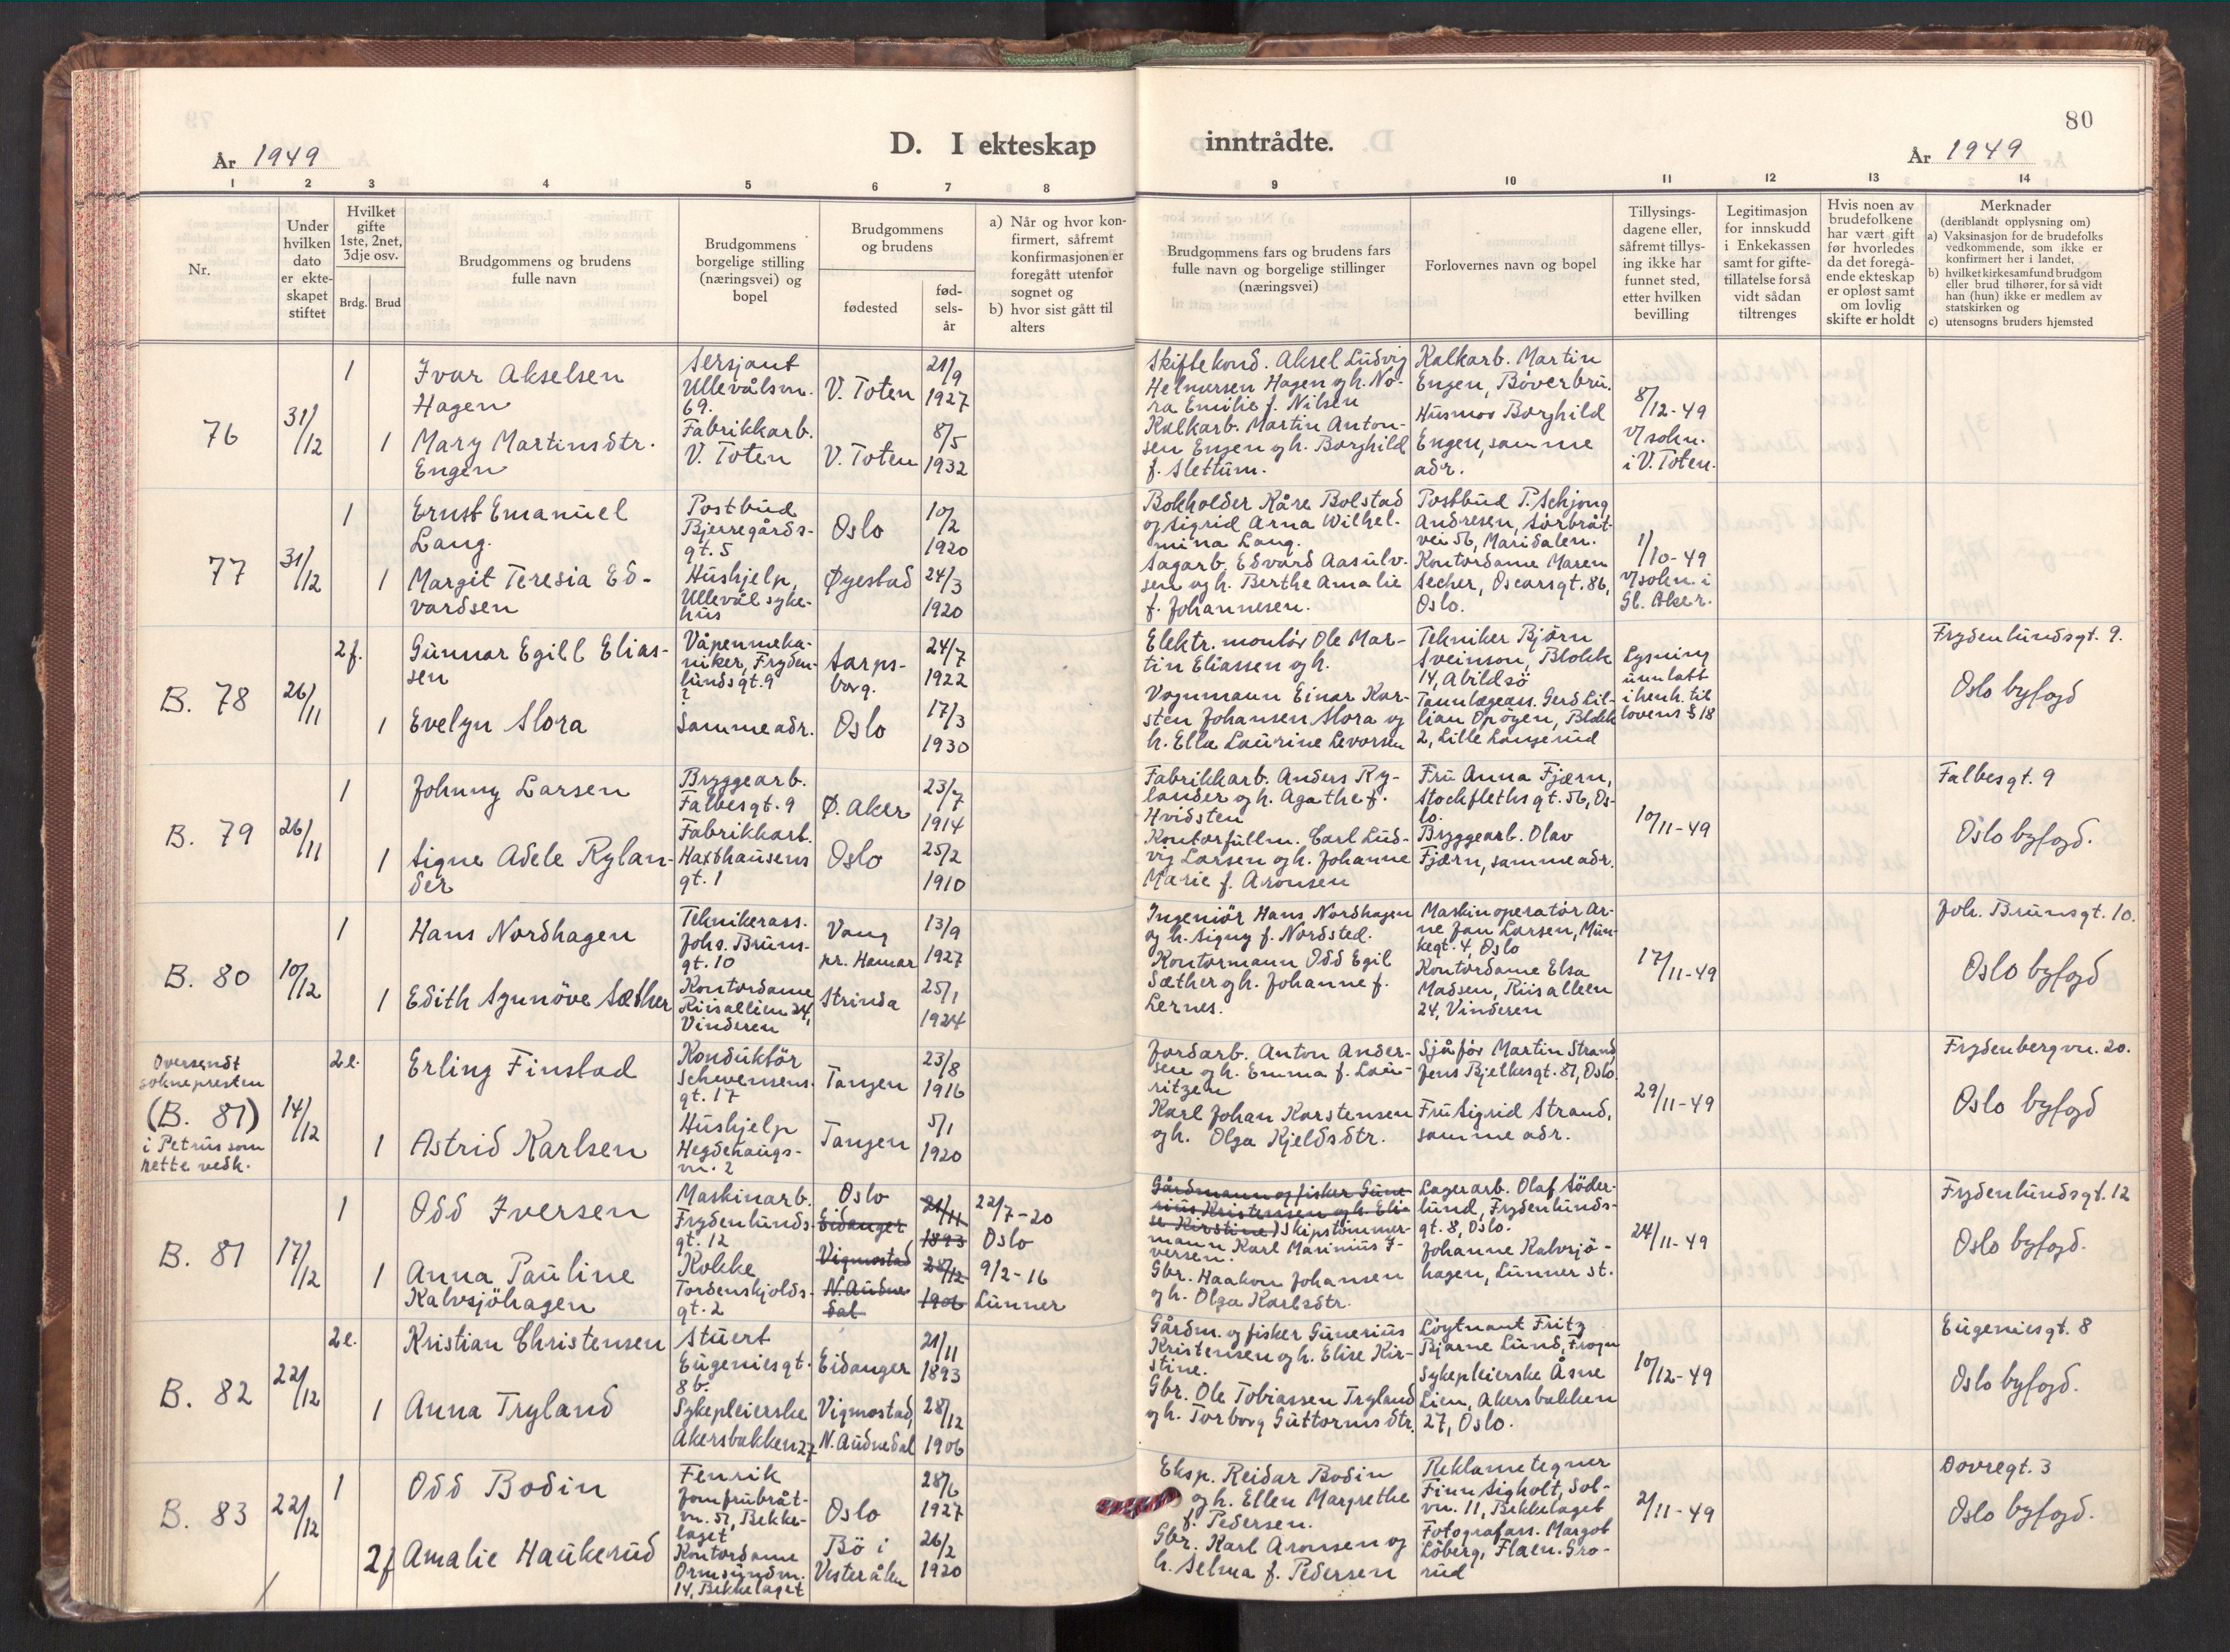 80
D. I ekteskap inntrådte.
År 1949
År 1949
1 2 3 4 5 6 7 8 9 10 11 12 13 14
Nr.
Under
hvilken
dato
er ekte-
skapet
stiftet
Hvilket
gifte
1ste, 2net,
3dje osv.
Brdg. Brud
Brudgommens og brudens
fulle navn
Brudgommens
borgelige stilling
(næringsvei) og
bopel
Brudgommens
og brudens
fødested
fød-
sels-
år
a) Når og hvor kon-
firmert, såfremt
konfirmasjonen er
foregått utenfor
sognet og
b) hvor sist gått til
alters
Brudgommens fars og brudens fars
fulle navn og borgelige stillinger
(næringsvei)
Forlovernes navn og bopel
Tillysings-
dagene eller,
såfremt tillys-
ing ikke har
funnet sted,
etter hvilken
bevilling
Legitimasjon
for innskudd
i Enkekassen
samt for gifte-
tillatelse forså
vidt sådan
tiltrenges
Hvis noen av
brudefolkene
har vært gift
før hvorledes
da det foregå-
ende ekteskap
er opløst samt
om lovlig
skifte er holdt
Merknader
(deriblandt opplysning om)
a) Vaksinasjon for de brudefolks
vedkommende, som ikke er
konfirmert her i landet,
b) hvilket kirkesamfund brudgom
eller brud tilhører, for så vidt
han (hun) ikke er medlem av
statskirken og
c) utensogns bruders hjemsted
76
31/12
1
Ivar Akselsen
Hagen
Sersjant
Ullevålsvn.
69.
V. Toten
21/9
1927
1
Mary Martinsdtr.
Engen
Fabrikkarb.
V. Toten
V. Toten
8/5
1932
Skiftekond. Aksel Ludvig
Helmersen Hagen og h. No-
ra Emilie f. Nilsen
Kalkarb. Martin Anton-
sen Engen og h. Borghild
f. Slettum.
Kalkarb. Martin
Engen, Bøverbru.
Husmor Borghild
Engen, samme
adr.
8/12-49
v/sokn.
i V. Toten.
77
31/12
1
Ernst Emanuel
Lang.
Postbud
Bjerregårds-
gt. 5
Oslo
10/2
1920
1
Margit Teresia Ed-
vardsen
Hushjelp,
Ullevål syke-
hus
Øyestad
24/3
1920
Bokholder Kåre Bolstad
og Sigrid Arna Wilhel-
mina Lang.
Sagarb. Edvard Aasulv-
sen og h. Berthe Amalie
f. Johannesen.
Postbud P. Schjong
Andresen, Sørbråt-
vei 56, Maridalen.
Kontordame Maren
Secher, Oscarsgt. 86,
Oslo.
1/10-49
v/sokn. i
Gl. Aker.
B. 78
26/11
2f.
Gunnar Egill Elias-
sen
Våpenmeka-
niker, Fryden-
lundsgt. 9
Sarps-
borg.
24/7
1922
1
Evelyn Slora
Samme adr.
Oslo
17/3
1930
Elektr. montør Ole Mar-
tin Eliassen og h.
Vognmann Einar Kar-
sten Johansen Slora og
h. Ella Laurine Levorsen
Tekniker Bjørn
Sveinson, Blokk
14, Abildsö
Tannlægeass. Gerd Lil-
lian Opøyen, Blokk
2, Lille Langerud
Lysning
unnlatt
i henh. til
lovens § 18
Frydenlundsgt. 9.
Oslo byfogd
B. 79
26/11
1
Johnny Larsen
Bryggearb.
Falbesgt. 9
Ø. Aker
23/7
1914
1
Signe Adele Rylan-
der
Fabrikkarb.
Haxthausens
gt. 1
Oslo
25/2
1910
Fabrikkarb. Anders Ry-
lander og h. Agathe f.
Hvidsten
Kontorfullm. Carl Lud-
vig Larsen og h. Johanne
Marie f. Aronsen
Fru Anna Fjærn,
Stockflethsgt. 56, Os-
lo.
Bryggearb. Olav
Fjærn, samme adr.
10/11-49
Falbesgt. 9
Oslo byfogd.
B. 80
10/12
1
Hans Nordhagen
Teknikerass.
Johs. Bruns-
gt. 10
Vang
pr. Hamar
13/9
1927
1
Edith Synnöve Sæther
Kontordame
Riisalléen 24,
Vinderen
Strinda
25/1
1924
Ingeniör Hans Nordhagen
og h. Signy f. Nordsted.
Kontormann Odd Egil
Sæther og h. Johanne f.
Lernes.
Maskinoperatör Ar-
ne Jan Larsen, Mun-
kegt. 4, Oslo
Kontordame Elsa
Madsen, Riisalleen
24, Vinderen
17/11-49
Joh. Brunsgt. 10.
Oslo byfogd
Oversendt
soknepresten
(B. 81)
i Petrus som
rette vedk.
14/12
2e.
Erling Finstad
Konduktör
Schwensens-
gt. 17
Tangen
23/8
1916
1
Astrid Karlsen
Hushjelp
Hegdehaugs-
vn. 2
Tangen
5/1
1920
Jordarb. Anton Ander-
sen og h. Emma f. Lau-
ritzen
Karl Johan Karstensen
og h. Olga Kjeldsdtr.
Sjåför Martin Strand,
Jens Bjelkesgt. 81, Oslo.
Fru Sigrid Strand,
samme adr.
29/11-49
Frydenbergvn. 20.
Oslo byfogd
B. 81
17/12
1
Odd Iversen
Maskinarb.
Frydenlunds-
gt. 12
Oslo
Eidanger
21/11
1893
22/7-20
Oslo
1
Anna Pauline
Kalvsjöhagen
Kokke
Tordenskjolds-
gt. 2
Vigmostad
N. Audne
dal
28/12
1906
9/2-16
Lunner
Gårdmann og fisker Gune-
rius Kristensen og h. Eli-
se Kirstine) Skipstömmer-
mann Karl Marinius I-
versen.
Gbr. Haakon Johansen
og h. Olga Karlsdtr.
Lagerarb. Olaf Söder-
lund, Frydenlunds-
gt. 8, Oslo.
Johanne Kalvsjö-
hagen, Lunner st.
24/11-49
Frydenlundsgt. 12
Oslo byfogd.
B. 82
22/12
2e.
Kristian Christensen
Stuert
Eugeniesgt.
8b.
Eidanger
21/11
1893
1
Anna Tryland
Sykepleierske
Akersbakken 27
Vigmostad,
N. Audnedal
28/12
1906
Gårdm. og fisker Gunerius
Kristensen og h. Elise Kir-
stine.
Gbr. Ole Tobiassen Tryland
og h. Torborg Guttormsdtr.
Löytnant Fritz
Bjarne Lund, Frogn
Sykepleierske Åsne
Lien, Akersbakken
27, Oslo.
10/12-49
Eugeniesgt. 8
Oslo byfogd.
B. 83
22/12
1
Odd Bodin
Fenrik
Jomfrubråt-
vn. 51, Bekke-
laget
Oslo
28/6
1927
2f
Amalie Haukerud
Kontordame
Ormsundvn.
14, Bekkelaget
Bö i
Vesterålen
26/2
1920
Eksp. Reidar Bodin
og h. Ellen Margrethe
f. Pedersen.
Gbr. Karl Aronsen og
h. Selma f. Pedersen
Reklametegner
Finn Sigholt, Sol-
vn. 11, Bekkelaget
Fotografass. Margot
Löberg, Flaen. Gro-
rud
2/11-49
Dovregt. 3
Oslo byfogd.